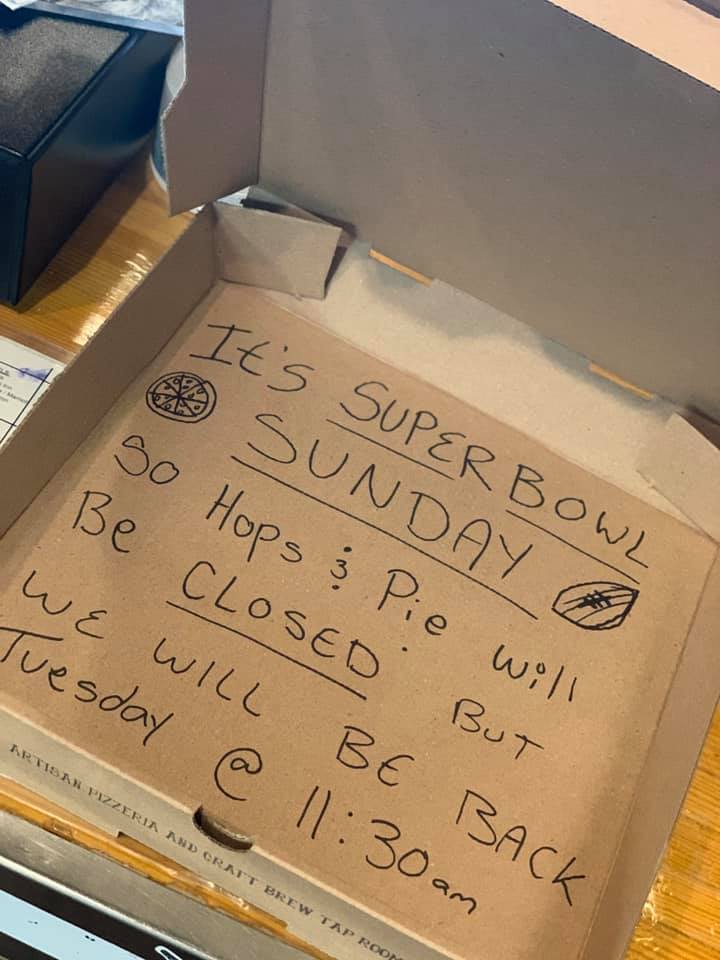 It's SUPER BOWL
SUNDAY
So Hops & Pie Will
Be CLOSED BUT
WE WILL BE BACK
Tuesday @ 11:30am
ARTISAN PIZZERIA AND CRAFT BREW TAP ROOM